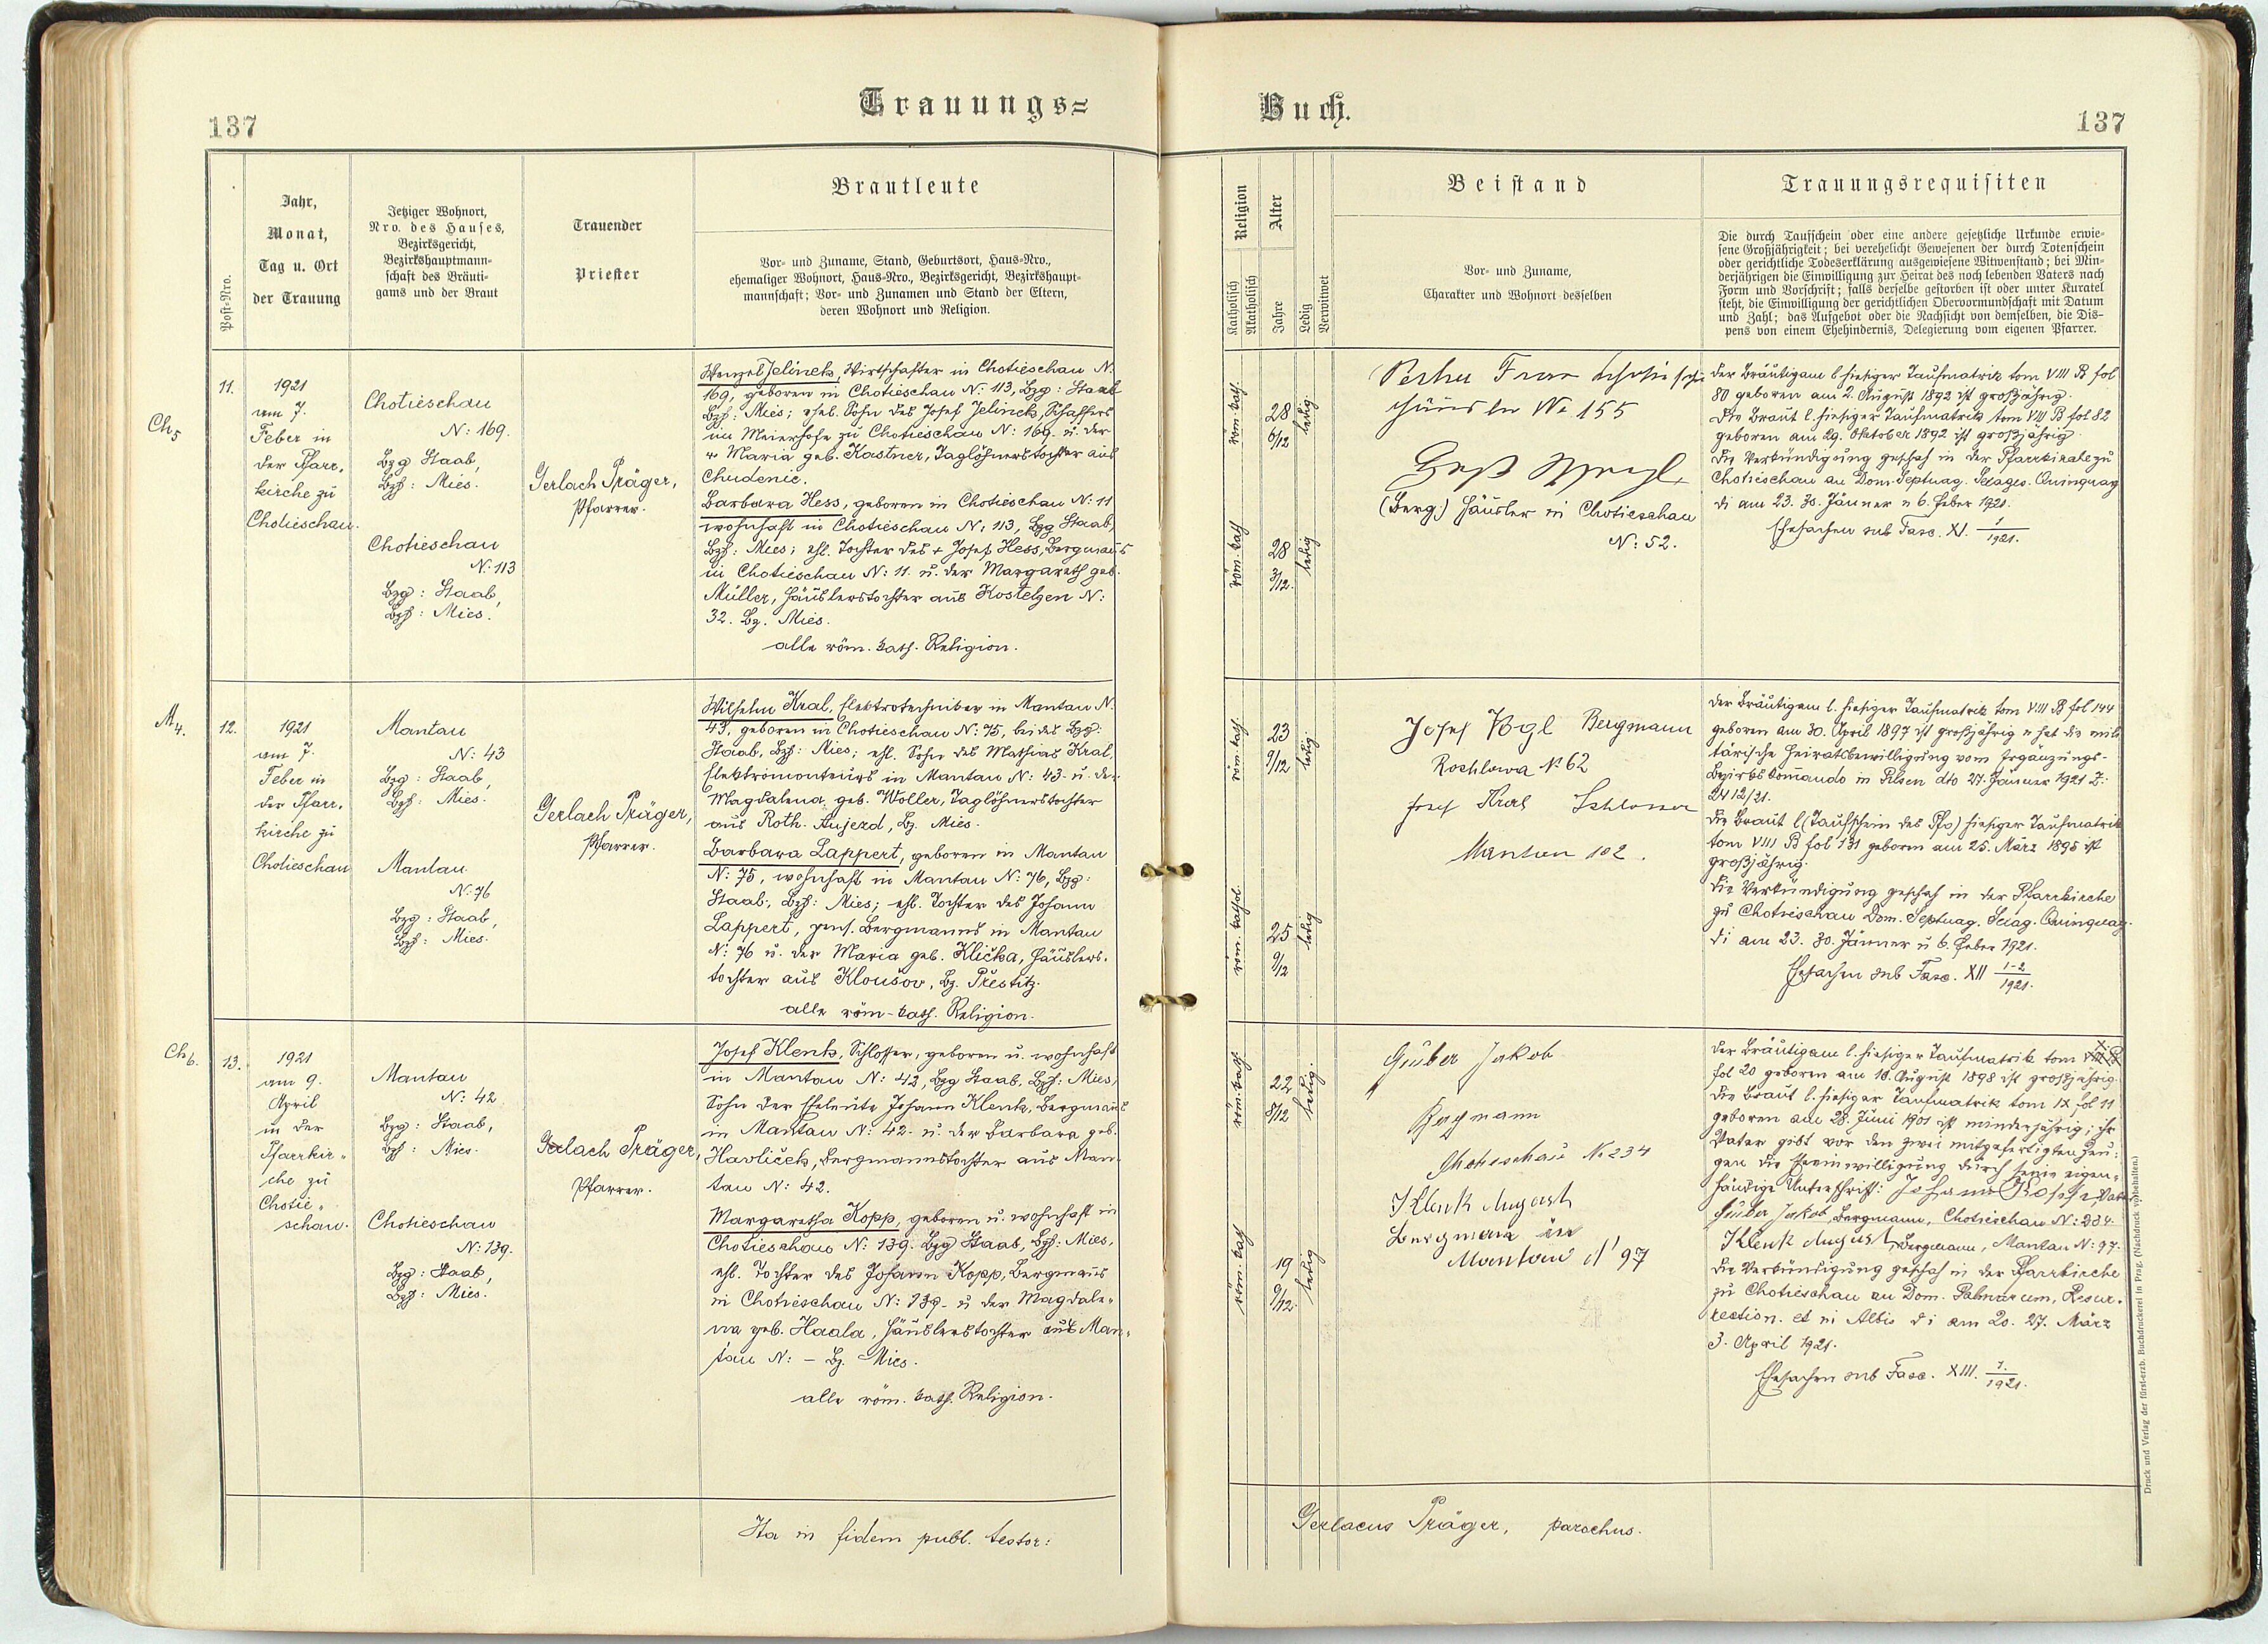 137
Trauungs=
Post-Nro.
Jahr,
Monat,
Tag u. Ort
der Trauung
Jetziger Wohnort,
Nro. des Hauses,
Bezirksgericht,
Bezirkshauptmann-
schaft des Bräuti-
gams und der Braut
Trauender
Priester
Brautleute
Vor- und Zuname, Stand, Geburtsort, Haus-Nro.,
ehemaliger Wohnort, Haus-Nro., Bezirksgericht, Bezirkshaupt-
mannschaft; Vor- und Zunamen und Stand der Eltern,
deren Wohnort und Religion.
Ch5
11.
1921
am 7.
Feber in
der Pfarr-
kirche zu
Chotieschau.
Chotieschau
N: 169.
Bzg Staab,
Bzh: Mies.
Chotieschau
N: 113
Bzg: Staab,
Bzh: Mies.
Gerlach Präger,
Pfarrer.
Wenzel Jelinek, Wirtschafter in Chotieschau N.
169, geboren in Chotieschau N: 113, Bzg: Staab
Bzh: Mies; ehel. Sohn des Josef Jelinek, Schaffers
im Meierhofe zu Chotieschau N: 169. u. der
+ Maria geb. Kastner, Taglöhnerstochter aus
Chudenic.
Barbara Hess, geboren in Chotieschau N: 11
wohnhaft in Chotieschau N: 113, Bzg Staab,
Bzh: Mies; ehl. Tochter des + Josef Hess, Bergmanns
in Chotieschau N: 11. u. der Margareth geb.
Müller, Häuslerstochter aus Kostelzen N:
32. Bz. Mies.
alle röm. kath. Religion.
M4.
12.
1921
am 7.
Feber in
der Pfarr-
kirche zu
Chotieschau
Mantau
N: 43
Bzg: Staab,
Bzh: Mies.
Mantau
N: 76
Bzg: Staab,
Bzh: Mies.
Gerlach Präger,
Pfarrer.
Wilhelm Kral, Elektrotechniker in Mantau N.
43, geboren in Chotieschau N: 75, bei des Bzg:
Staab, Bzh: Mies; ehl. Sohn des Mathias Kral,
Elektromonteurs in Mantau N: 43. u. der
Magdalena geb. Woller, Taglöhnerstochter
aus Roth. Aujezd, Bz. Mies.
Barbara Lappert, geboren in Mantau
N: 75, wohnhaft in Mantau N: 76, Bzg:
Staab, Bzh: Mies; ehl. Tochter des Johann
Lappert, pens. Bergmanns in Mantau
N: 76 u. der Maria geb. Klička, Häuslers-
tochter aus Kloušov, Bz. Přestitz.
alle röm-kath. Religion.
Ch6.
13.
1921
am 9.
April
in der
Pfarrkir-
che zu
Chotie-
schau.
Mantau
N: 42
Bzg: Staab,
Bzh: Mies.
Chotieschau
N: 139.
Bzg: Staab,
Bzh: Mies.
Gerlach Präger,
Pfarrer.
Josef Klenk, Schlosser, geboren u. wohnhaft
in Mantau N: 42, Bzg Staab, Bzh: Mies,
Sohn der Eheleute Johann Klenk, Bergmanns
in Mantau N: 42- u. der Barbara geb.
Havliček, Bergmannstochter aus Man-
tau N: 42.
Margaretha Kopp, geboren u. wohnhaft in
Chotieschau N: 139. Bzg Staab, Bzh: Mies,
ehl. Tochter des Johann Kopp, Bergmanns
in Chotieschau N: 139- u der Magdale-
na geb. Haala, Häuslerstochter aus Man-
tau N: - Bz. Mies.
alle röm. kath. Religion.
Ita in fidem publ. testor:
Buch.
137
Religion
Katholisch
Akatholisch
Alter
Jahre
Ledig
Verwitwet
Beistand
Vor- und Zuname,
Charakter und Wohnort desselben
Trauungsrequisiten
Die durch Taufschein oder eine andere gesetzliche Urkunde erwie-
sene Großjährigkeit; bei verehelicht Gewesenen der durch Totenschein
oder gerichtliche Todeserklärung ausgewiesene Witwenstand; bei Min-
derjährigen die Einwilligung zur Heirat des noch lebenden Vaters nach
Form und Vorschrift; falls derselbe gestorben ist oder unter Kuratel
steht, die Einwilligung der gerichtlichen Obervormundschaft mit Datum
und Zahl; das Aufgebot oder die Nachsicht von demselben, die Dis-
pens von einem Ehehindernis, Delegierung vom eigenen Pfarrer.
röm. kath.
28
6/12
ledig.
röm. kath
28
3/12.
ledig
No 155
(Berg.) Häusler in Chotieschau
N: 52.
Der Bräutigam l. hiesiger Taufmatrik tom VIII B fol
80 geboren am 2. August 1892 ist großjährig.
Die Braut l. hiesiger Taufmatrik tom VIII B fol 82
geboren am 29. Oktober 1892 ist großjährig.
Die Verkündigung geschah in der Pfarrkirche zu
Chotieschau an Dom. Septuag. Sexages. Quinquag
di am 23. 30. Jänner u 6. Feber 1921.
Ehesachen sub Fasc. XI. 1/1921.
röm. kath.
23
9/12
ledig.
röm. kathol.
25
9/12
ledig
Josef Vogl Bergmann
Rochlowa No 62
Josef Kral Schlosser
Mantau 102.
Der Bräutigam l. hiesiger Taufmatrik tom VIII B fol 144
geboren am 30. April 1897 ist großjährig u hat die mili
tärische Heiratsbewilligung vom Ergänzungs-
Bezirkskomando in Pilsen dto 27. Jänner 1921 Z:
2412/21.
Die Braut l (Taufschein des Pfs) hiesiger Taufmatrik
tom VIII B fol 131 geboren am 25. März 1895 ist
großjährig.
Die Verkündigung geschah in der Pfarrkirche
zu Chotieschau Dom. Septuag. Sexag. Quinquag.
di am 23. 30. Jänner u 6. Feber 1921.
Ehesachen sub Fasc. XII 1-2/1921.
röm. kath.
22
8/12
ledig.
röm. kath
19
9/12.
ledig
Gruber Jakob
Bergmann
Chotieschau No 234
Klenk August
Bergmann in
Mantau No 97
Der Bräutigam l. hiesiger Taufmatrik tom X.
fol 20 geboren am 18. August 1898 ist großjährig.
Die Braut l. hiesiger Taufmatrik tom IX fol 11
geboren am 28. Juni 1901 ist minderjährig; ihr
Vater gibt vor den zwei mitgefertigten Zeu-
gen die Eheeinwilligung durch seine eigen-
händige Unterschrift: Johann Kopp, Vater
Gruber Jakob, Bergmann, Chotieschau N: 234.
Klenk August, Bergmann, Mantau N: 97.
Die Verkündigung geschah in der Pfarrkirche
zu Chotieschau an Dom. Palmarum, Resur-
rection. et in Albis di am 20. 27. März
3. April 1921.
Ehesachen sub Fasc. XIII. 1./1921.
Gerlacus Präger, parochus.
Druck und Verlag der fürst-erzb. Buchdruckerei in Prag. (Nachdruck vorbehalten.)